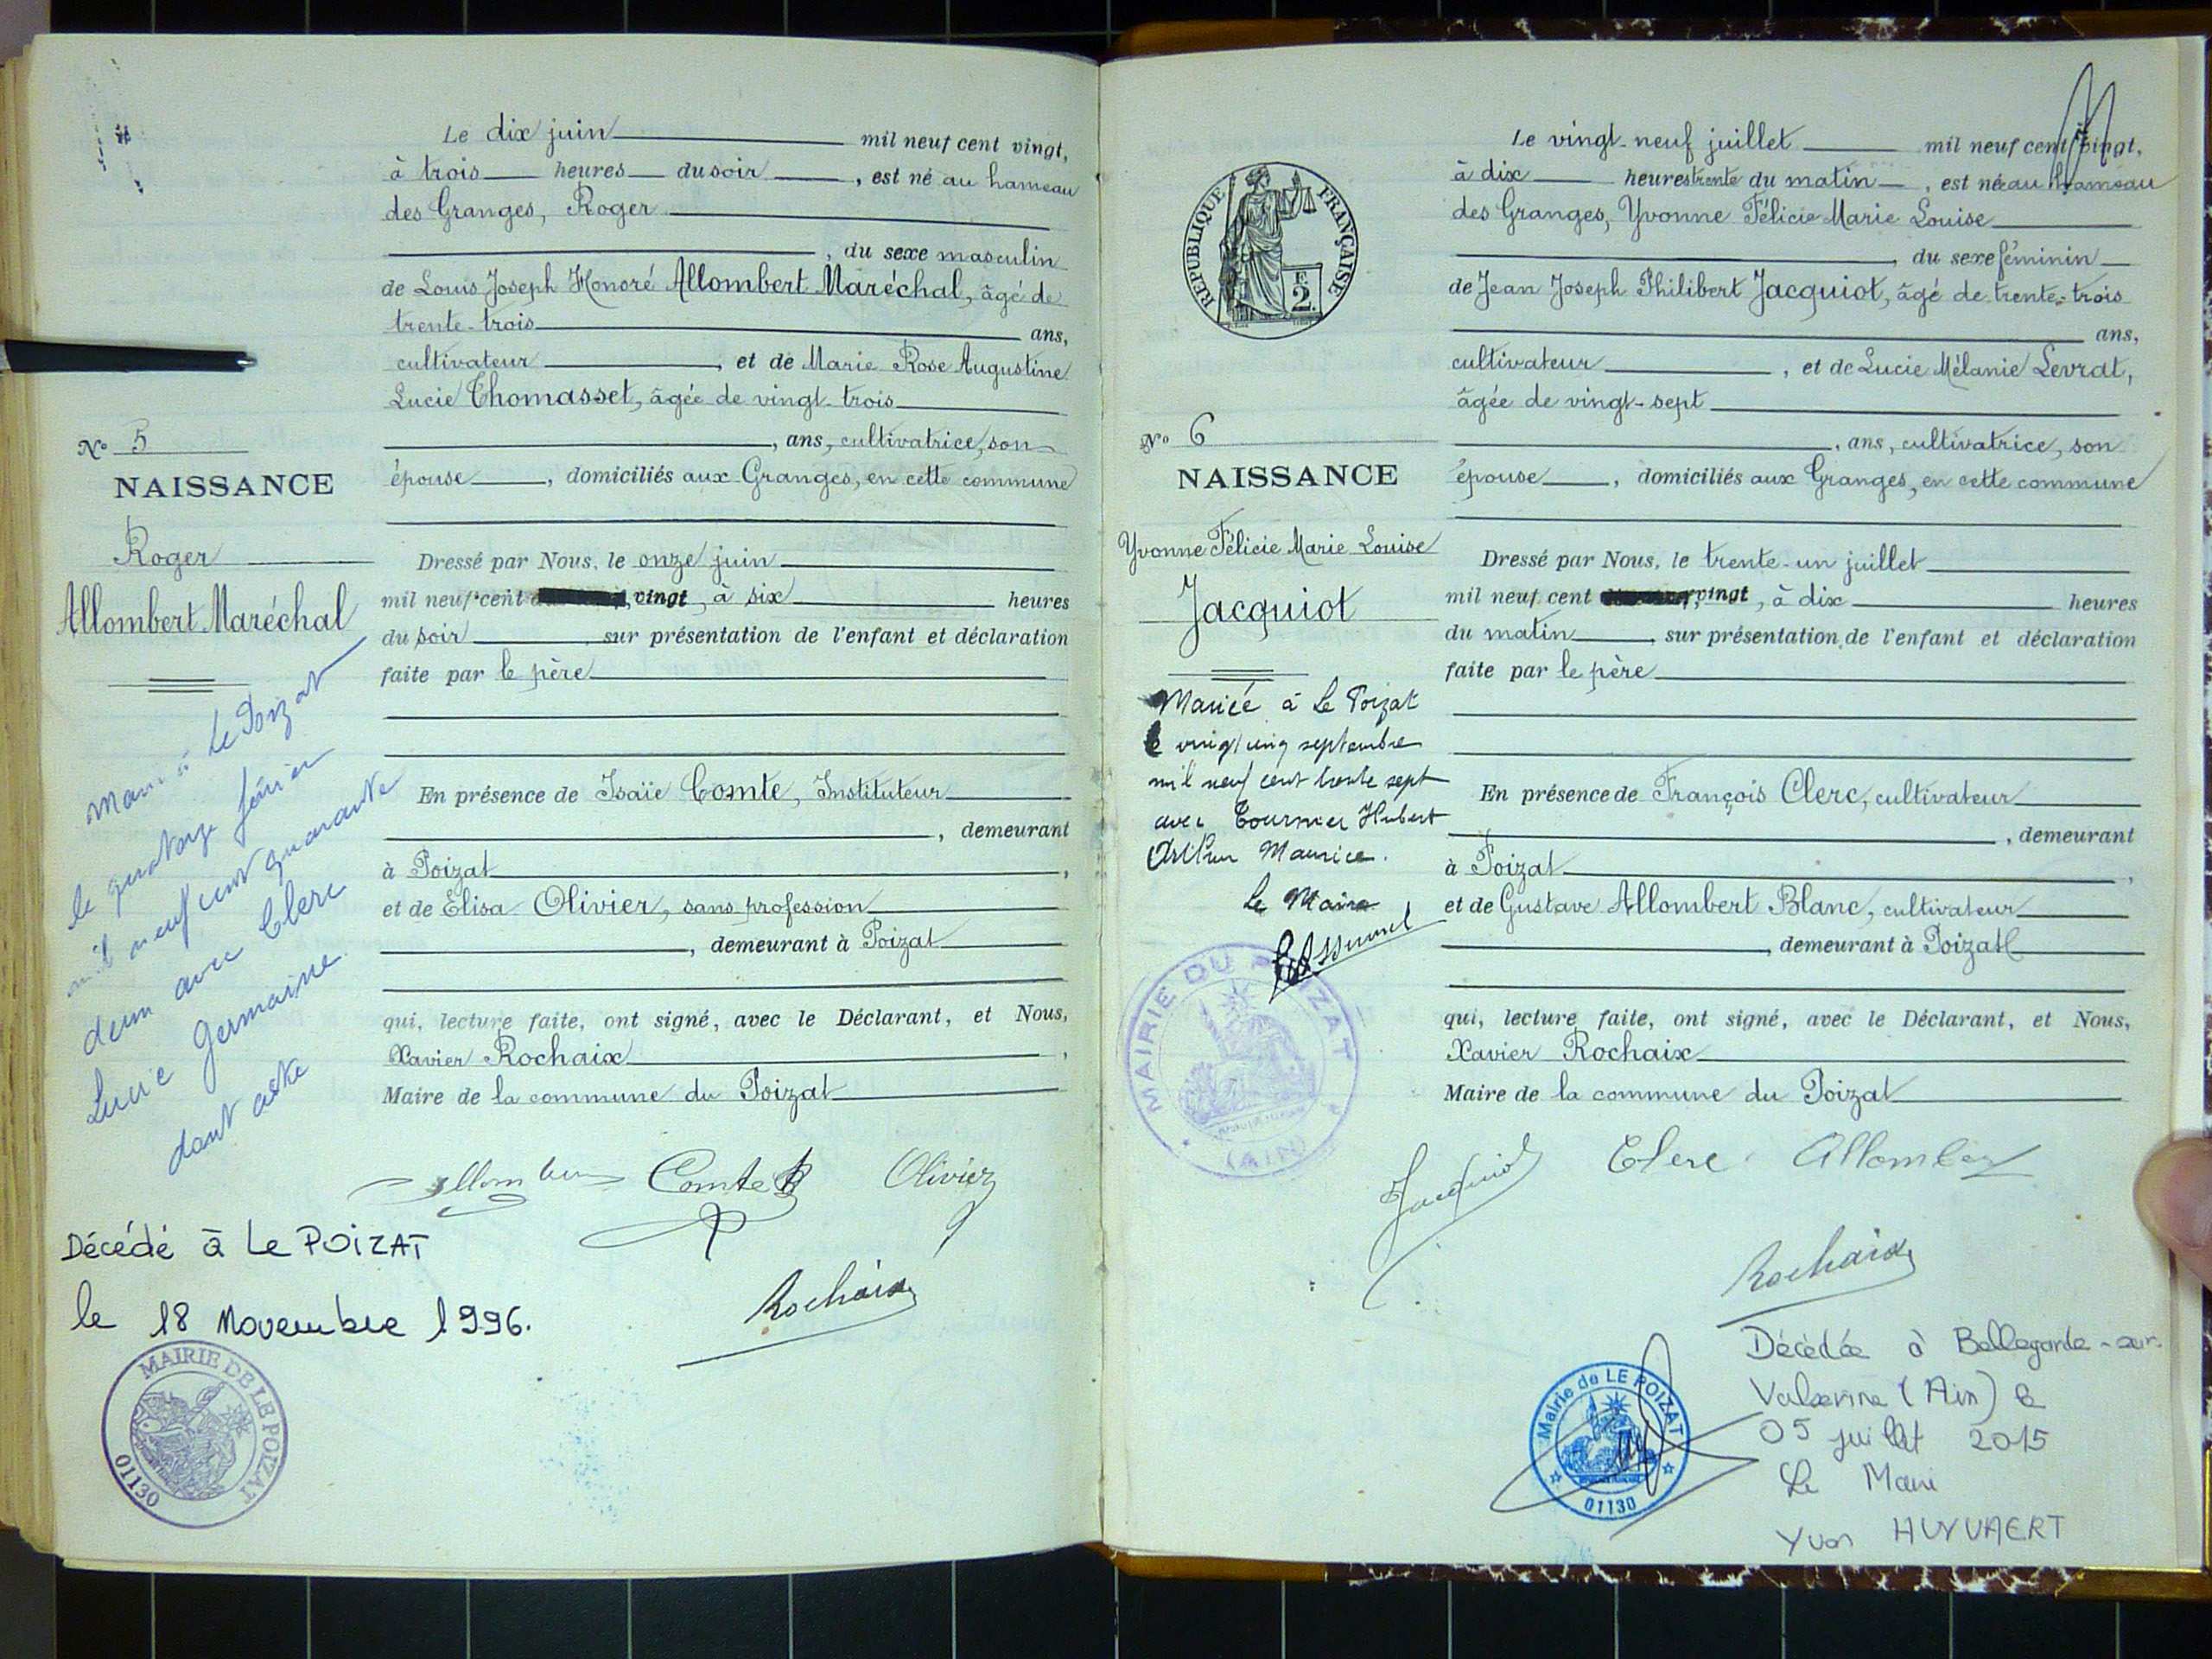 Le dix juin mil neuf cent vingt,
à trois heures du soir, est né au hameau
des Granges, Roger
, du sexe masculin
de Louis Joseph Honoré Allombert Maréchal, âgé de
trente-trois ans,
cultivateur, et de Marie Rose Augustine
Lucie Thomasset, âgée de vingt-trois
, ans, cultivatrice, son
épouse, domiciliés aux Granges, en cette commune
Dressé par Nous, le onze juin
mil neuf cent vingt, à six heures
du soir, sur présentation de l'enfant et déclaration
faite par le père
En présence de Isaïe Comte, Instituteur
, demeurant
à Poizat,
et de Elisa Olivier, sans profession
, demeurant à Poizat
qui, lecture faite, ont signé, avec le Déclarant, et Nous,
Xavier Rochaix,
Maire de la commune du Poizat
Comte Olivier
Rochaix
N° 5
NAISSANCE
Roger
Allombert Maréchal
Marié à Le Poizat
le quatorze février
mil neuf cent quarante
deux avec Clerc
Lucie Germaine
dont acte
Décédé à Le POIZAT
le 18 Novembre 1996.
MAIRIE DE LE POIZAT
01130
Le vingt-neuf juillet mil neuf cent vingt,
à dix heures trente du matin, est née au hameau
des Granges, Yvonne Félicie Marie Louise
, du sexe féminin
de Jean Joseph Philibert Jacquiot, âgé de trente-trois
ans,
cultivateur, et de Lucie Mélanie Levrat,
âgée de vingt-sept
, ans, cultivatrice, son
épouse, domiciliés aux Granges, en cette commune
Dressé par Nous, le trente-un juillet
mil neuf cent vingt, à dix heures
du matin, sur présentation de l'enfant et déclaration
faite par le père
En présence de François Clerc, cultivateur
, demeurant
à Poizat,
et de Gustave Allombert Blanc, cultivateur
, demeurant à Poizat
qui, lecture faite, ont signé, avec le Déclarant, et Nous,
Xavier Rochaix
Maire de la commune du Poizat
Jacquiot Clerc Allombert
Rochaix
RÉPUBLIQUE FRANÇAISE
E
2
N° 6
NAISSANCE
Yvonne Félicie Marie Louise
Jacquiot
Mariée à Le Poizat
le vingt cinq septembre
mil neuf cent trente sept
avec Tournier Hubert
Arthur Maurice.
Le Maire
MAIRIE DU POIZAT
(AIN)
Mairie de LE POIZAT
01130
Décédée à Bellegarde-sur-
Valserine (Ain) le
05 juillet 2015
Le Maire
Yvan HUYVAERT